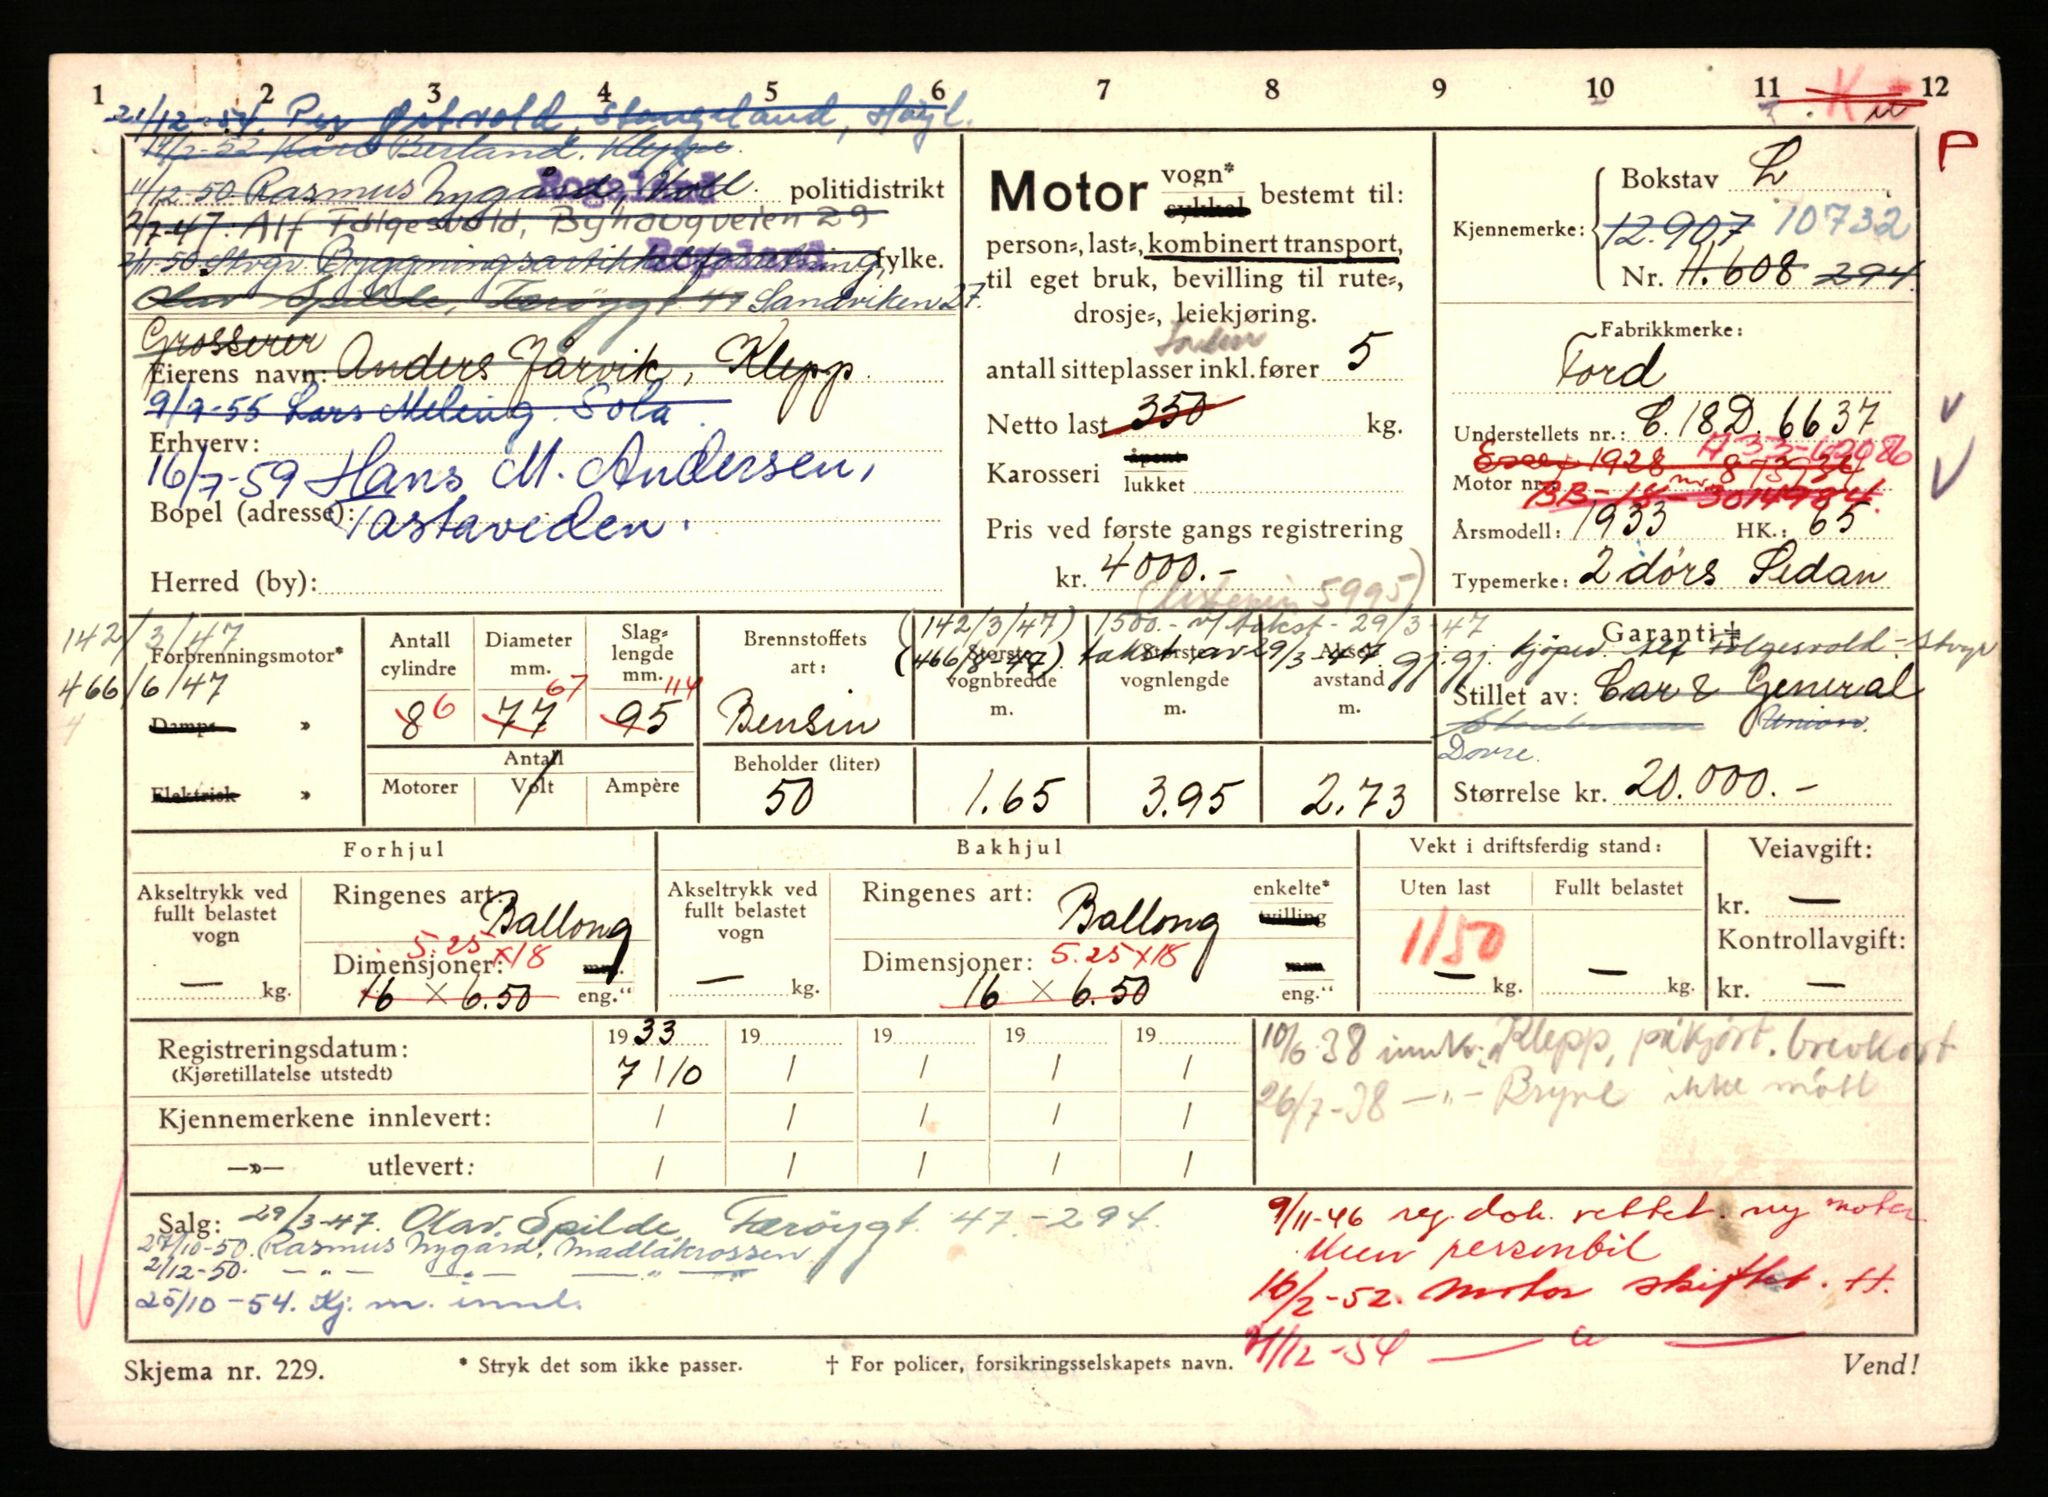 1 2 3 4 5 6 7 8 9 10 11 12
21/12-54. Per Østvold, Stangeland, Høyl.
Kåre Berland. Kleppe.
11/12-50 Rasmus Nygård, Rogaland politidistrikt
2/7-47: Alf Følgesvold, Byhaugveien 29
2/11-50 Stvgr Bygningsartikkelforretning, Rogaland fylke.
Olav Spilde, Færøygt 47 Sandviken 27.
Grosserer
Eierens navn: Anders Jårvik, Klepp.
9/9-55 Lars Meling. Sola.
Erhverv:
16/7-59 Hans M. Andersen,
Bopel (adresse): Tastaveden.
Herred (by):
Motor vogn* sykkel bestemt til:
person=, last=, kombinert transport,
til eget bruk, bevilling til rute=,
drosje=, leiekjøring.
antall sitteplasser inkl. fører 5
Netto last 350 kg.
Karosseri åpent lukket
Pris ved første gangs registrering
kr. 4000.-
5995)
P
Kjennemerke: Bokstav L
12.907 10732
Nr. 11.608 294
Fabrikkmerke:
Ford
Understellets nr.: C.18D.6637
Essex 1928 nr 873934
Motor nr.: BB-18-3014984.
Årsmodell: 1933 HK.: 65
Typemerke: 2 dørs Sedan
142/3/47
Forbrenningsmotor*
466/6/47
Damps »
Elektrisk »
Antall cylindre 8 6
Diameter mm. 77 67
Slag=lengde mm. 95 114
Antall
Motorer Volt Ampère
Brennstoffets art: Bensin
Beholder (liter) 50
(142/3/47) 1500.- v/ takst - 29/3-47
(466/8-47) takst av 29/3-47 gj. gj. kjøper Alf Følgesvold - Stvgr
Største vognbredde m. 1.65
Største vognlengde m. 3.95
Aksel avstand m. 2.73
Garanti †
Stillet av: Car & General
Union.
Dovre.
Størrelse kr. 20.000.-
Forhjul
Akseltrykk ved fullt belastet vogn — kg.
Ringenes art: Ballong
5.25 x 18
Dimensjoner: 16 × 6.50 mm. eng."
Bakhjul
Akseltrykk ved fullt belastet vogn — kg.
Ringenes art: Ballong enkelte* tvilling
Dimensjoner: 5.25 x 18
16 × 6.50 mm eng."
Vekt i driftsferdig stand:
Uten last 1150 — kg.
Fullt belastet — kg.
Veiavgift:
kr. —
Kontrollavgift:
kr. —
Registreringsdatum: (Kjøretillatelse utstedt) 1933 19 19 19 19
7/10 / / / /
Kjennemerkene innlevert: / / / / /
—»— utlevert: / / / / /
10/6-38 innk. Klepp, påkjørt. brevkort
26/7-38 —"— Bryne ikke møtt
Salg: 29/3-47. Olav Spilde, Færøygt. 47.-294.
27/10-50. Rasmus Nygård, Madlakrossen
2/12-50. — " — — " — — " —
25/10-54. Kj. m. innl.
9/11-46 reg. dok. rettet. ny motor
Kun personbil
16/2-52. Motor skiftet. H.
21/12-54 — " —
Skjema nr. 229.
* Stryk det som ikke passer.
† For policer, forsikringsselskapets navn.
Vend!